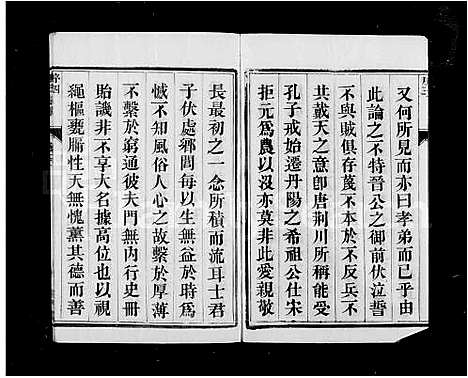 又何所見而亦曰孝弟而已乎由
此論之不特晉公之御前伏泣誓
不與賊俱存蔑不本於不反兵不
共戴天之意卽唐荆川所稱能受
孔子戒始遷丹陽之希祖公仕宋
拒元爲農以沒亦莫非此愛親敬
長最初之一念所積而流耳士君
子伏處鄉閭每以生無益於時爲
憾不知風俗人心之故繫於厚薄
不繫於窮通彼夫門無內行史冊
貽譏非不享大名據高位也以視
繩樞甕牖性天無愧薰其德而善
序四